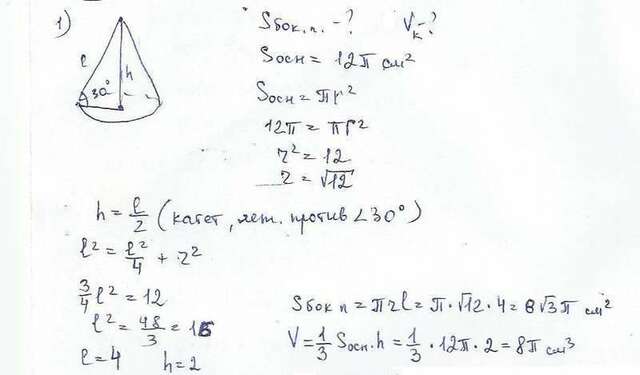 1)
Sбок.п. -? Vк-?
l
h
30°
Sосн = 12π см²
Sосн = πr²
12π = πr²
r² = 12
r = √12
h = l/2 (катет, леж. против ∠30°)
l² = l²/4 + r²
3/4 l² = 12
l² = 48/3 = 16
l = 4 h = 2
Sбок п = πrl = π · √12 · 4 = 8√3π см²
V = 1/3 Sосн · h = 1/3 · 12π · 2 = 8π см³